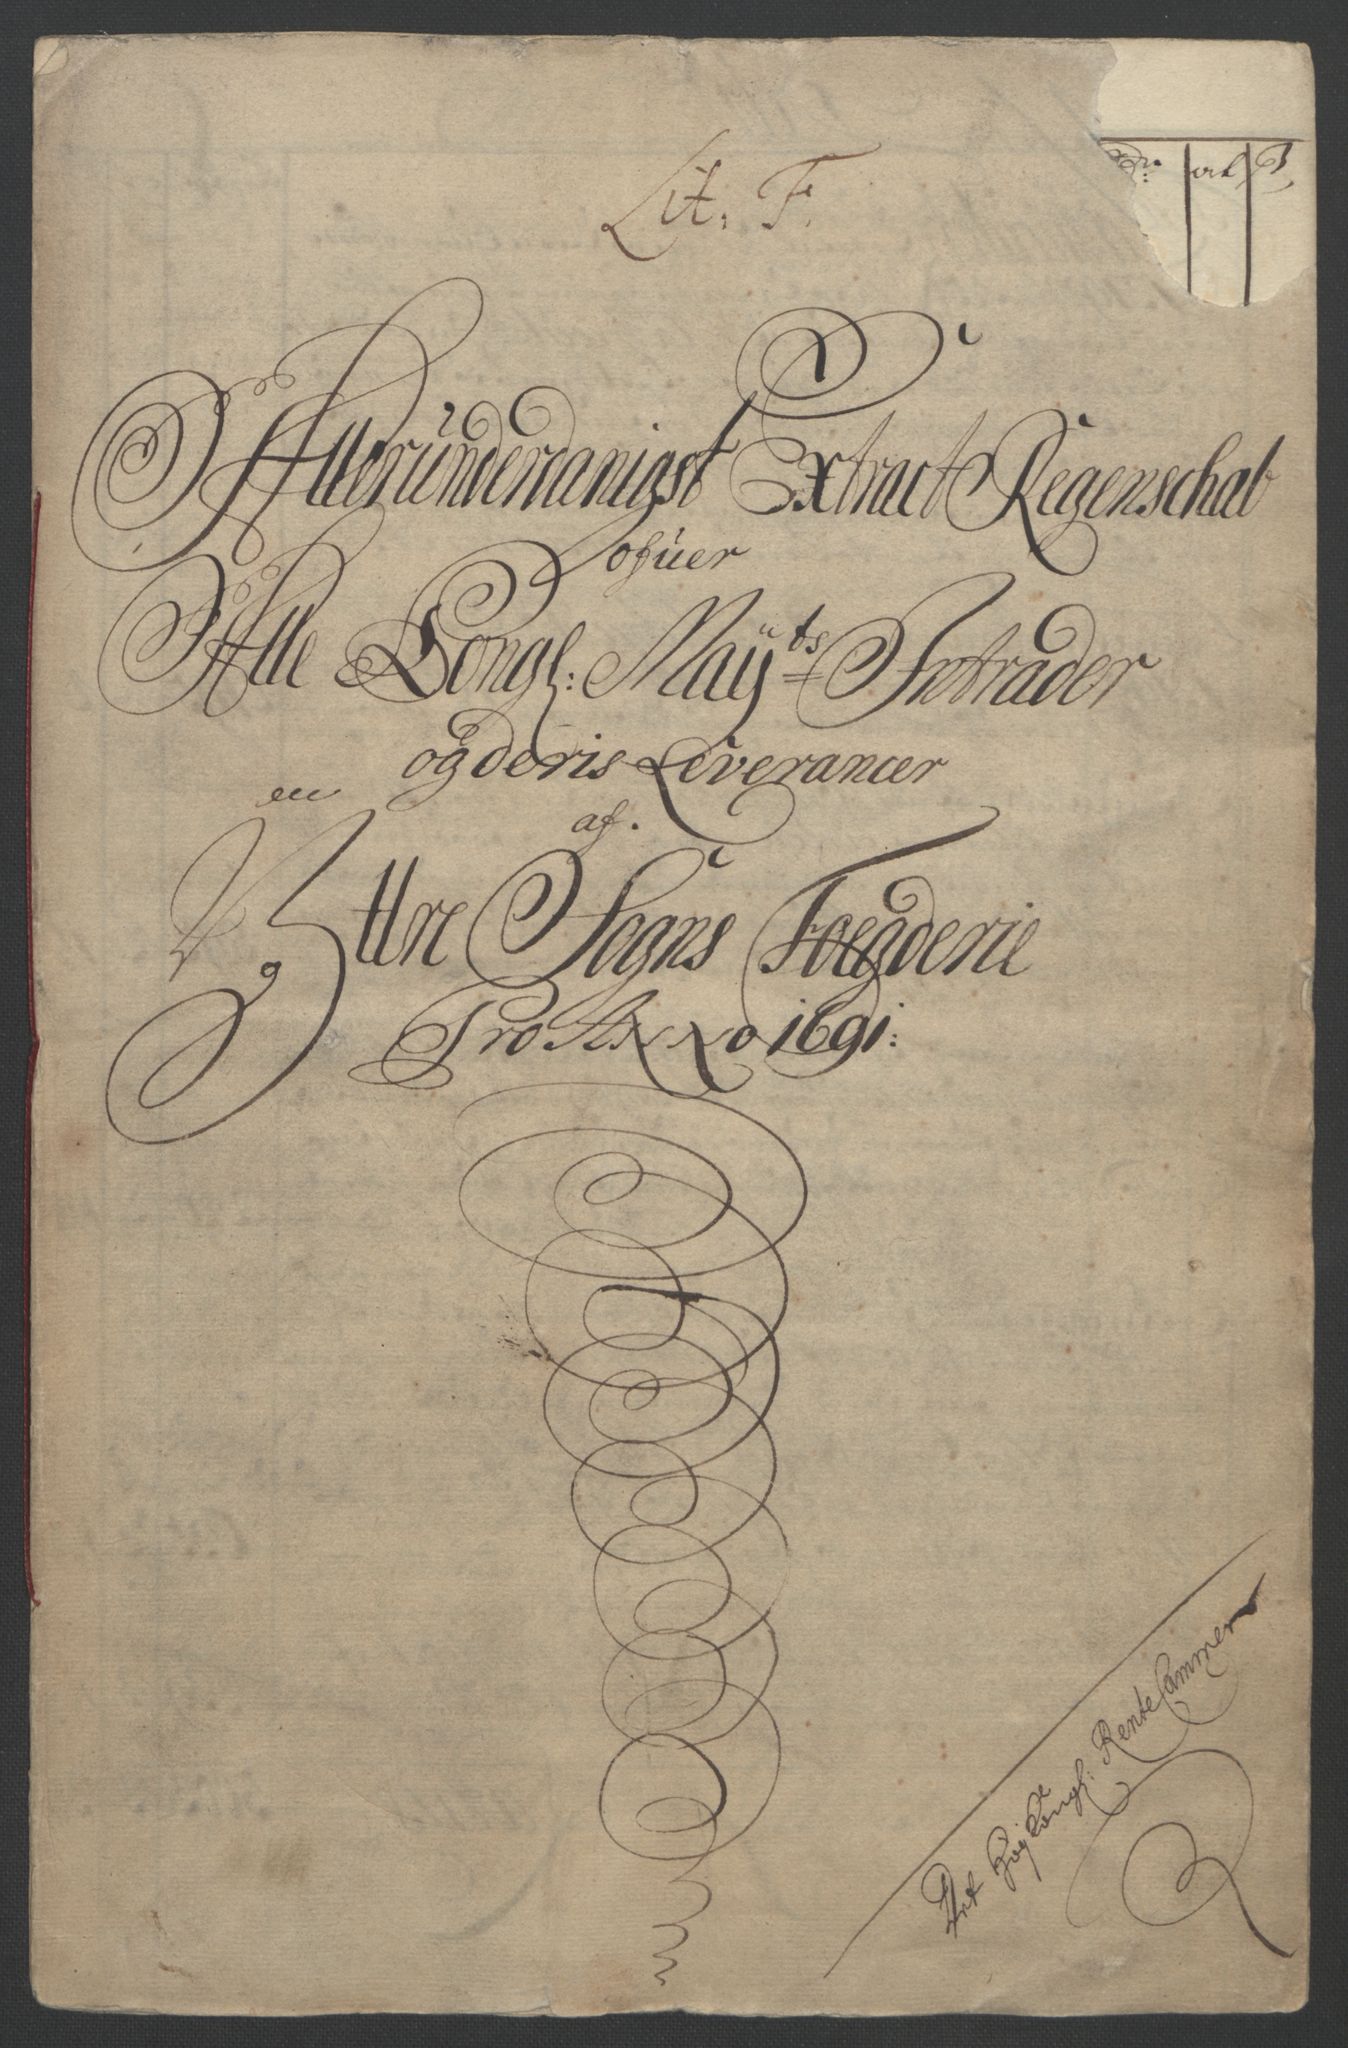 Lit. F.
Alleründerdanigst Extract Regenschab
ofuer
Alle Kongl: Maÿts Intrader
og deris Leverancer
af.
Ittre Sogns Foegderie
Pro Anno 1691:
Rente Cammer